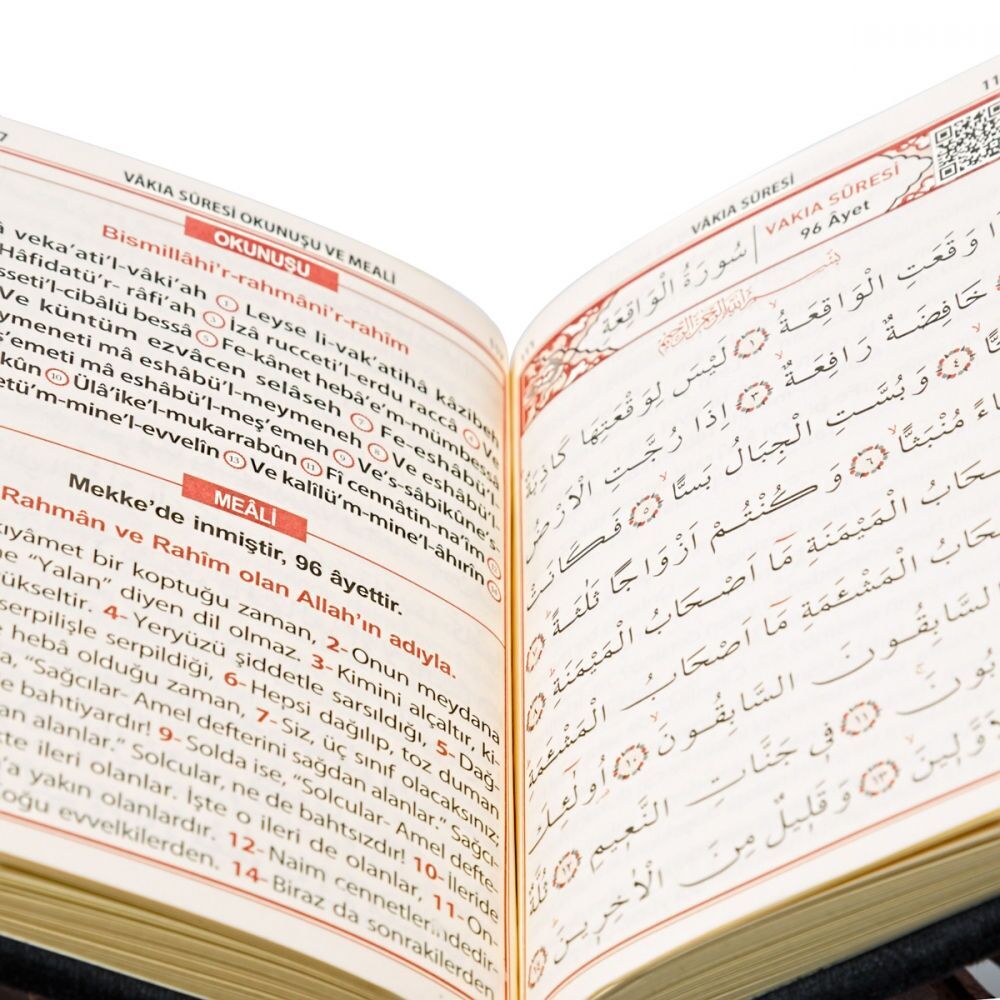 7
VÂKIA SÛRESİ OKUNUŞU VE MEALİ
OKUNUŞU
Bismillâhi'r-rahmâni'r-rahîm
veka'ati'l-vâki'ah ① Leyse li-vak'atihâ kâzibeh
Hâfidatü'r- râfi'ah ③ İzâ rucceti'l-erdu raccâ ④ Ve
sseti'l-cibâlü bessâ ⑤ Fe-kânet hebâ'e'm-mümbessâ
Ve küntüm ezvâcen selâseh ⑦ Fe-eshâbü'l-
ymeneti mâ eshâbü'l-meymeneh ⑧ Ve eshâbü'l-
ş'emeti mâ eshâbü'l-meş'emeh ⑨ Ve's-sâbikûne's-
kûn ⑩ Ülâ'ike'l-mukarrabûn ⑪ Fî cennâtin-na'îm ⑫
etü'm-mine'l-evvelîn ⑬ Ve kalîlü'm-mine'l-âhırîn ⑭
MEÂLİ
Mekke'de inmiştir, 96 âyettir.
Rahmân ve Rahîm olan Allah'ın adıyla.
kıyâmet bir koptuğu zaman, 2- Onun meydana
ne "Yalan" diyen dil olmaz. 3- Kimini alçaltır, ki-
yükseltir. 4- Yeryüzü şiddetle sarsıldığı, 5- Dağ-
serpilişle serpildiği, 6- Hepsi dağılıp, toz duman
hebâ olduğu zaman, 7- Siz, üç sınıf olacaksınız;
a, "Sağcılar- Amel defterini sağdan alanlar." Sağcı-
e bahtiyardır! 9- Solda ise, "Solcular- Amel defte-
an alanlar." Solcular, ne de bahtsızdır! 10- İleride
te ileri olanlar. İşte o ileri de olanlar, 11- On-
'a yakın olanlardır. 12- Naim cennetlerindedir-
oğu evvelkilerden. 14- Biraz da sonrakilerden
11
VÂKIA SÛRESİ
VAKIA SÛRESİ
96 Âyet
سُورَةُ الْوَاقِعَةِ
بِسْمِ اللّٰهِ الرَّحْمٰنِ الرَّحِيمِ
ا وَقَعَتِ الْوَاقِعَةُ ﴿١﴾ لَيْسَ لِوَقْعَتِهَا كَاذِبَةٌ
خَافِضَةٌ رَافِعَةٌ ﴿٣﴾ اِذَا رُجَّتِ الْاَرْضُ
﴿٤﴾ وَبُسَّتِ الْجِبَالُ بَسًّا ﴿٥﴾ فَكَانَتْ
اءً مُنْبَثًّا ﴿٦﴾ وَكُنْتُمْ اَزْوَاجًا ثَلٰثَةً ﴿٧﴾
حَابُ الْمَيْمَنَةِ مَا اَصْحَابُ الْمَيْمَنَةِ ﴿٨﴾
حَابُ الْمَشْـَٔمَةِ مَا اَصْحَابُ الْمَشْـَٔمَةِ
السَّابِقُونَ السَّابِقُونَ ﴿١٠﴾ اُولٰٓئِكَ
بُونَ ﴿١١﴾ فِى جَنَّاتِ النَّعِيمِ ﴿١٢﴾ ثُلَّةٌ
اوَّلِينَ ﴿١٣﴾ وَقَلِيلٌ مِنَ الْاٰخِرِينَ ﴿١٤﴾